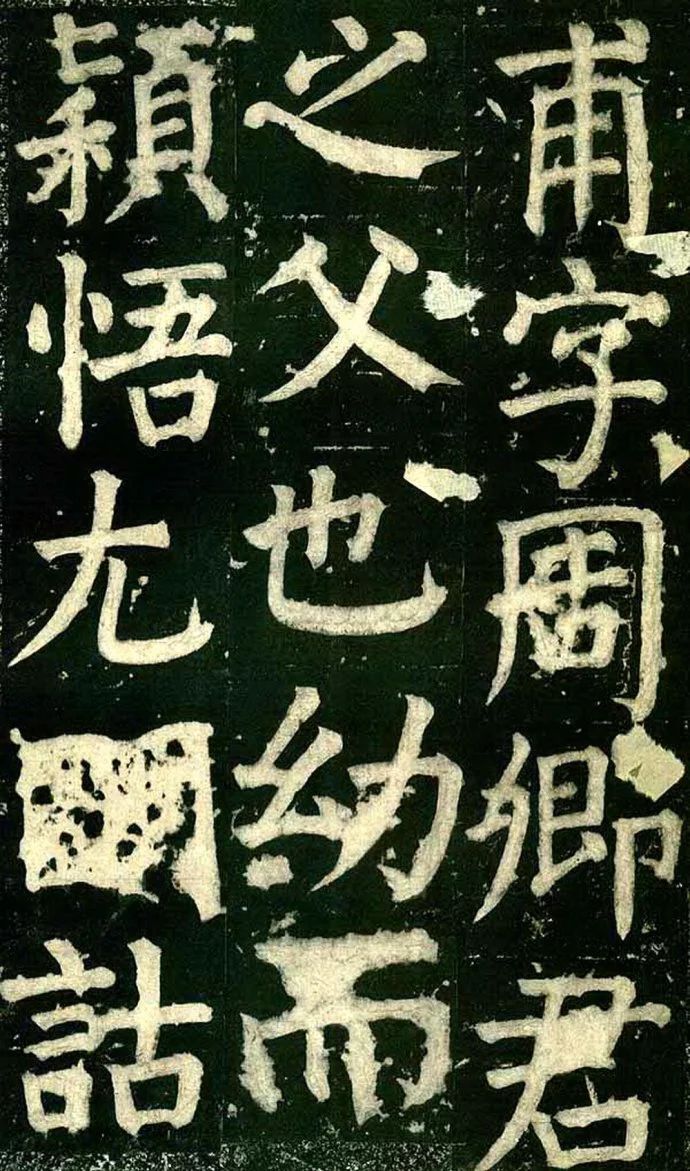 甫字周卿君
之父也幼而
穎悟尤詁